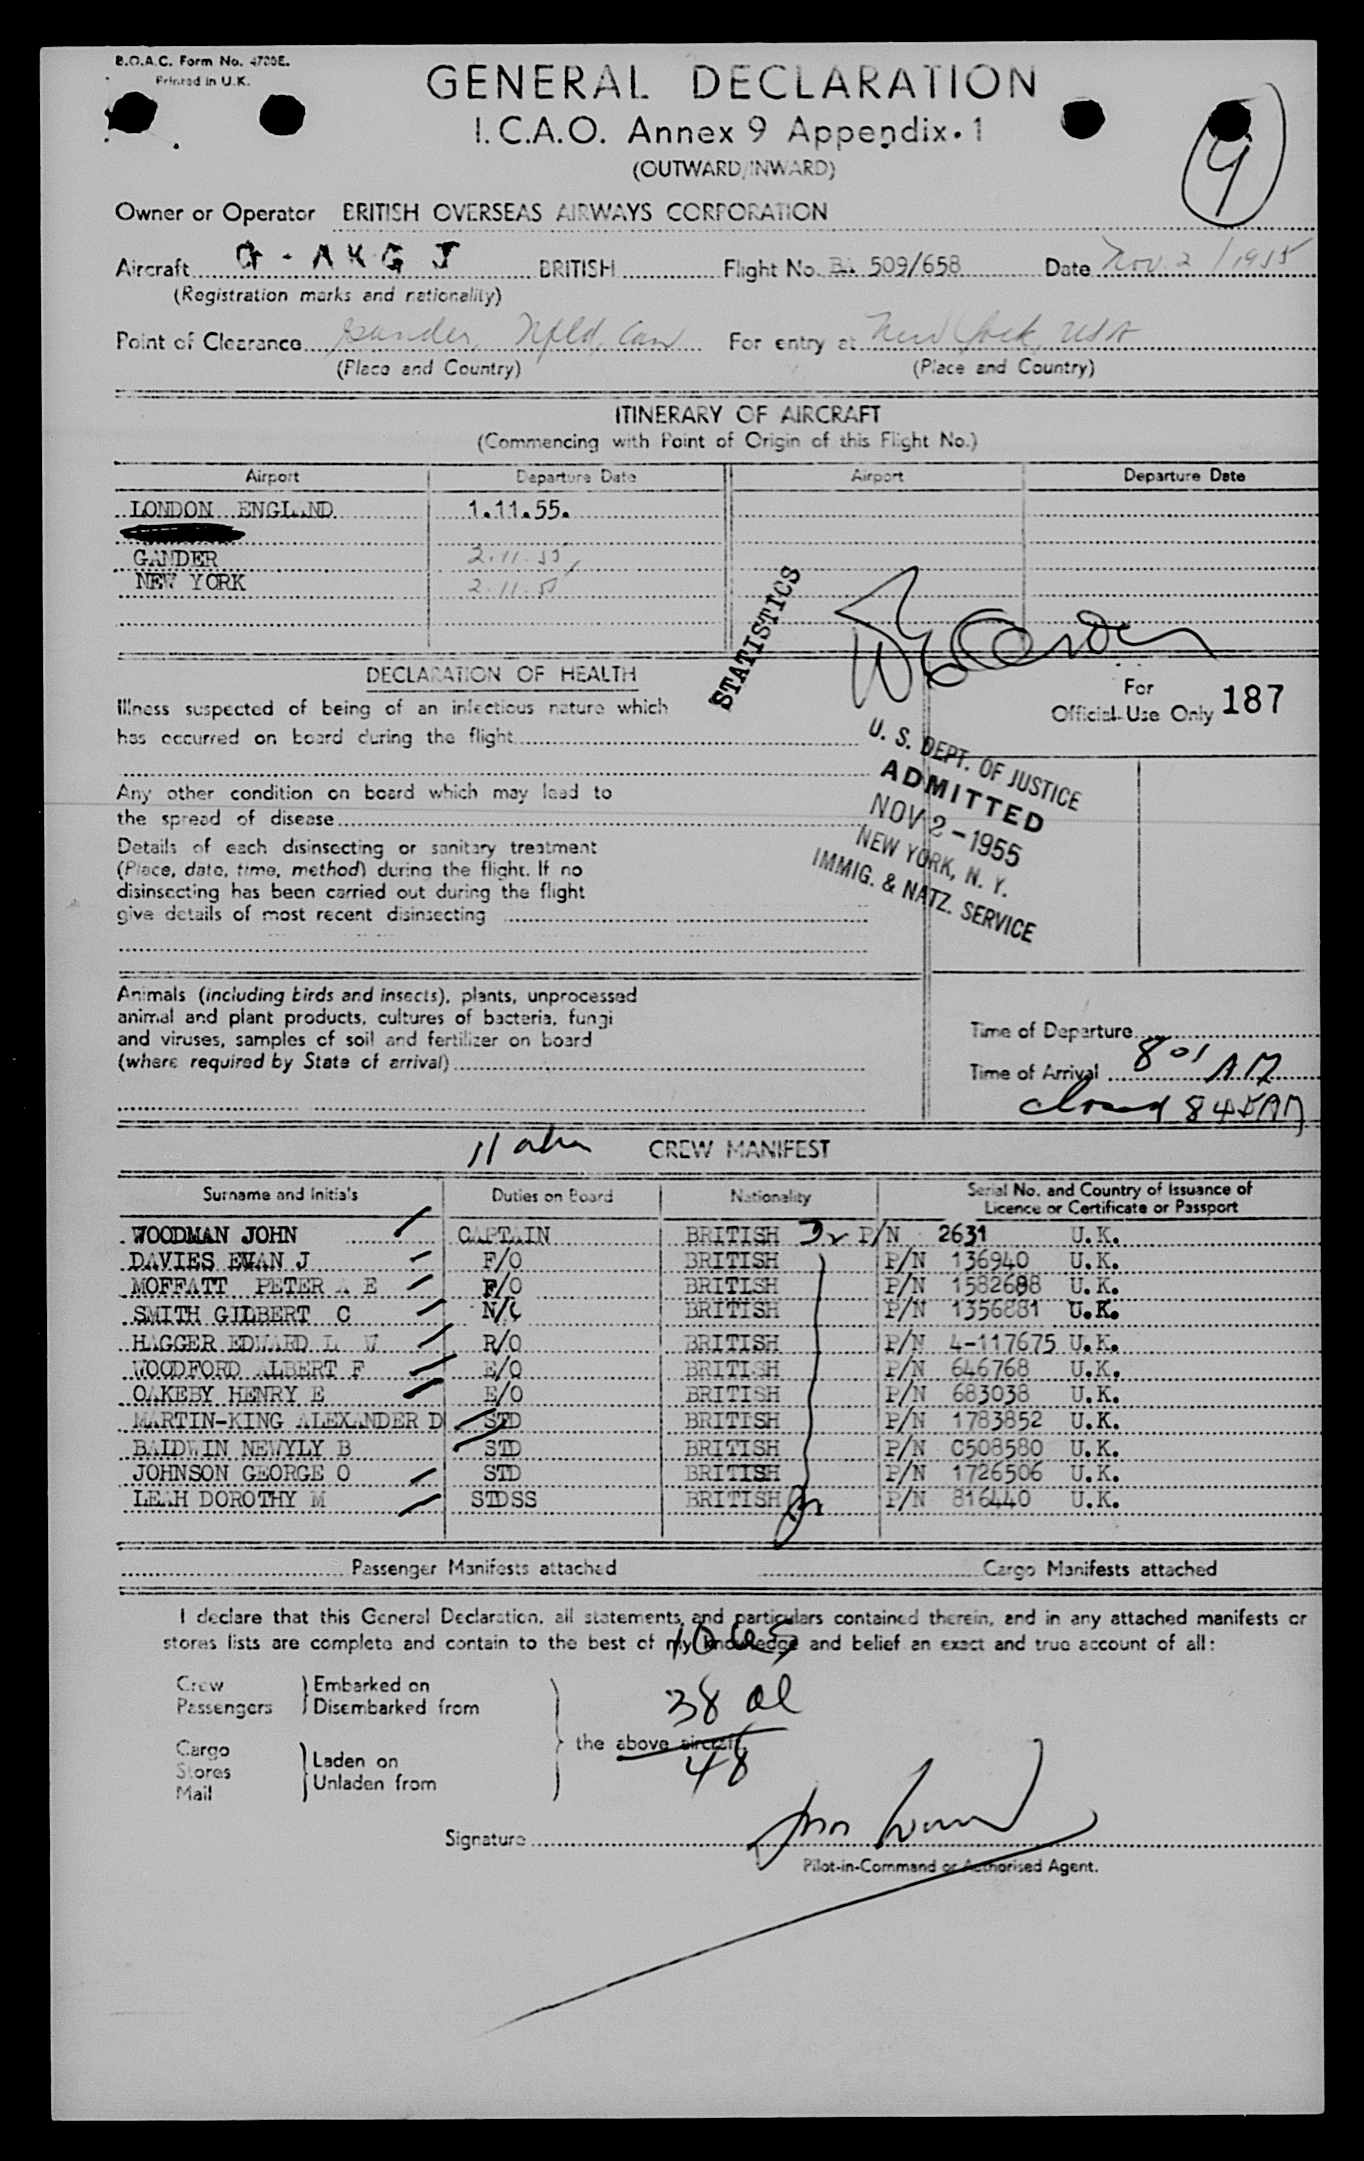 B.O.A.C. Form No. 4700E.
Printed in U.K.
GENERAL DECLARATION
I.C.A.O. Annex 9 Appendix·1
(OUTWARD/INWARD)
Owner or Operator BRITISH OVERSEAS AIRWAYS CORPORATION
Aircraft G - A K G J BRITISH Flight No. BA 509/658 Date Nov. 2 / 1955
(Registration marks and nationality)
Point of Clearance Gander, Nfld, Can For entry at New York, USA
(Place and Country) (Place and Country)
ITINERARY OF AIRCRAFT
(Commencing with Point of Origin of this Flight No.)
Airport Departure Date Airport Departure Date
LONDON ENGLAND 1.11.55.
GANDER 2.11.55
NEW YORK 2.11.55
STATISTICS
DECLARATION OF HEALTH
For
Official Use Only 187
Illness suspected of being of an infectious nature which
has occurred on board during the flight
Any other condition on board which may lead to
the spread of disease
Details of each disinsecting or sanitary treatment
(Place, date, time, method) during the flight. If no
disinsecting has been carried out during the flight
give details of most recent disinsecting
U. S. DEPT. OF JUSTICE
ADMITTED
NOV 2 - 1955
NEW YORK, N. Y.
IMMIG. & NATZ. SERVICE
Animals (including birds and insects), plants, unprocessed
animal and plant products, cultures of bacteria, fungi
and viruses, samples of soil and fertilizer on board
(where required by State of arrival)
Time of Departure
Time of Arrival 8 01 AM
closed 8 45 AM
11 CREW MANIFEST
Surname and Initials Duties on Board Nationality Serial No. and Country of Issuance of
Licence or Certificate or Passport
WOODMAN JOHN CAPTAIN BRITISH P/N 2631 U.K.
DAVIES EVAN J F/O BRITISH P/N 136940 U.K.
MOFFATT PETER A E F/O BRITISH P/N 1582688 U.K.
SMITH GILBERT C N/O BRITISH P/N 1356881 U.K.
HAGGER EDWARD L W R/O BRITISH P/N 4-117675 U.K.
WOODFORD ALBERT F E/O BRITISH P/N 646768 U.K.
OAKEBY HENRY E E/O BRITISH P/N 683038 U.K.
MARTIN-KING ALEXANDER D STD BRITISH P/N 1783852 U.K.
BALDWIN NEWYLY B STD BRITISH P/N C508580 U.K.
JOHNSON GEORGE O STD BRITISH P/N 1726506 U.K.
LEAH DOROTHY M STDSS BRITISH P/N 816440 U.K.
Passenger Manifests attached Cargo Manifests attached
I declare that this General Declaration, all statements and particulars contained therein, and in any attached manifests or
stores lists are complete and contain to the best of my knowledge and belief an exact and true account of all:
10 US
38 al
48
Crew
Passengers
Embarked on
Disembarked from
Cargo
Stores
Mail
Laden on
Unladen from
the above aircraft.
Signature
Pilot-in-Command or Authorised Agent.